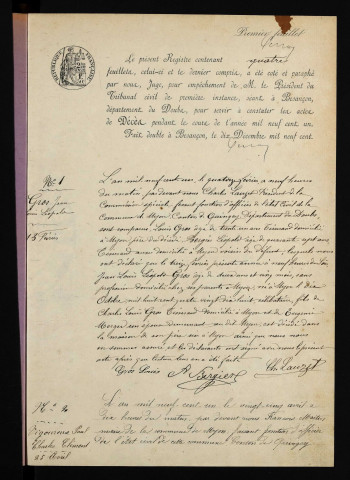 Premier feuillet
Le présent Registre contenant quatre
feuillets, celui-ci et le dernier compris, a été coté et paraphé
par nous, Juge, pour empêchement de M. le Président du
Tribunal civil de première instance, séant à Besançon,
département du Doubs, pour servir à constater les actes
de Décès pendant le cours de l'année mil neuf cent un.
Fait double à Besançon, le dix Décembre mil neuf cent.
RÉPUBLIQUE FRANÇAISE
No 1
Gros Jean
Louis Léopold
13 Février
L'an mil neuf cent un, le quatorze février, à neuf heures
du matin, par devant nous Charles Lanzet Président de la
Commission spéciale, faisant fonction d'officier de l'état civil de la
Commune de Myon, Canton de Quingey, Département du Doubs,
sont comparus Louis Gros âgé de trente un ans
domicilié
à Myon, père du décédé, Bergier Léopold âgé de quarante sept ans
domicilié à Myon voisin du défunt, lesquels nous
ont déclaré que le treize février présente année à neuf heures du soir
Jean Louis Léopold Gros âgé de deux ans et cinq mois, sans
profession domicilié chez ses parents à Myon, né à Myon le
Octobre mil huit cent quatre vingt dix huit, célibataire, fils de
Charles Louis Gros domicilié à Myon et de Eugénie
son épouse demeurant au dit Myon, est décédé dans
la maison de son père sis à Myon, ainsi que nous nous
en sommes assuré et les déclarants ont signé avec nous le présent
acte après que lecture leur en a été faite.
Gros Louis
L. Bergier
Ch. Lanzet
No 2
Paul
Charles Clément
25 Avril
L'an mil neuf cent un le vingt cinq avril à
heures du matin, par devant nous
maire de la commune de Myon faisant fonction d'officier
de l'état civil de cette commune Canton de Quingey